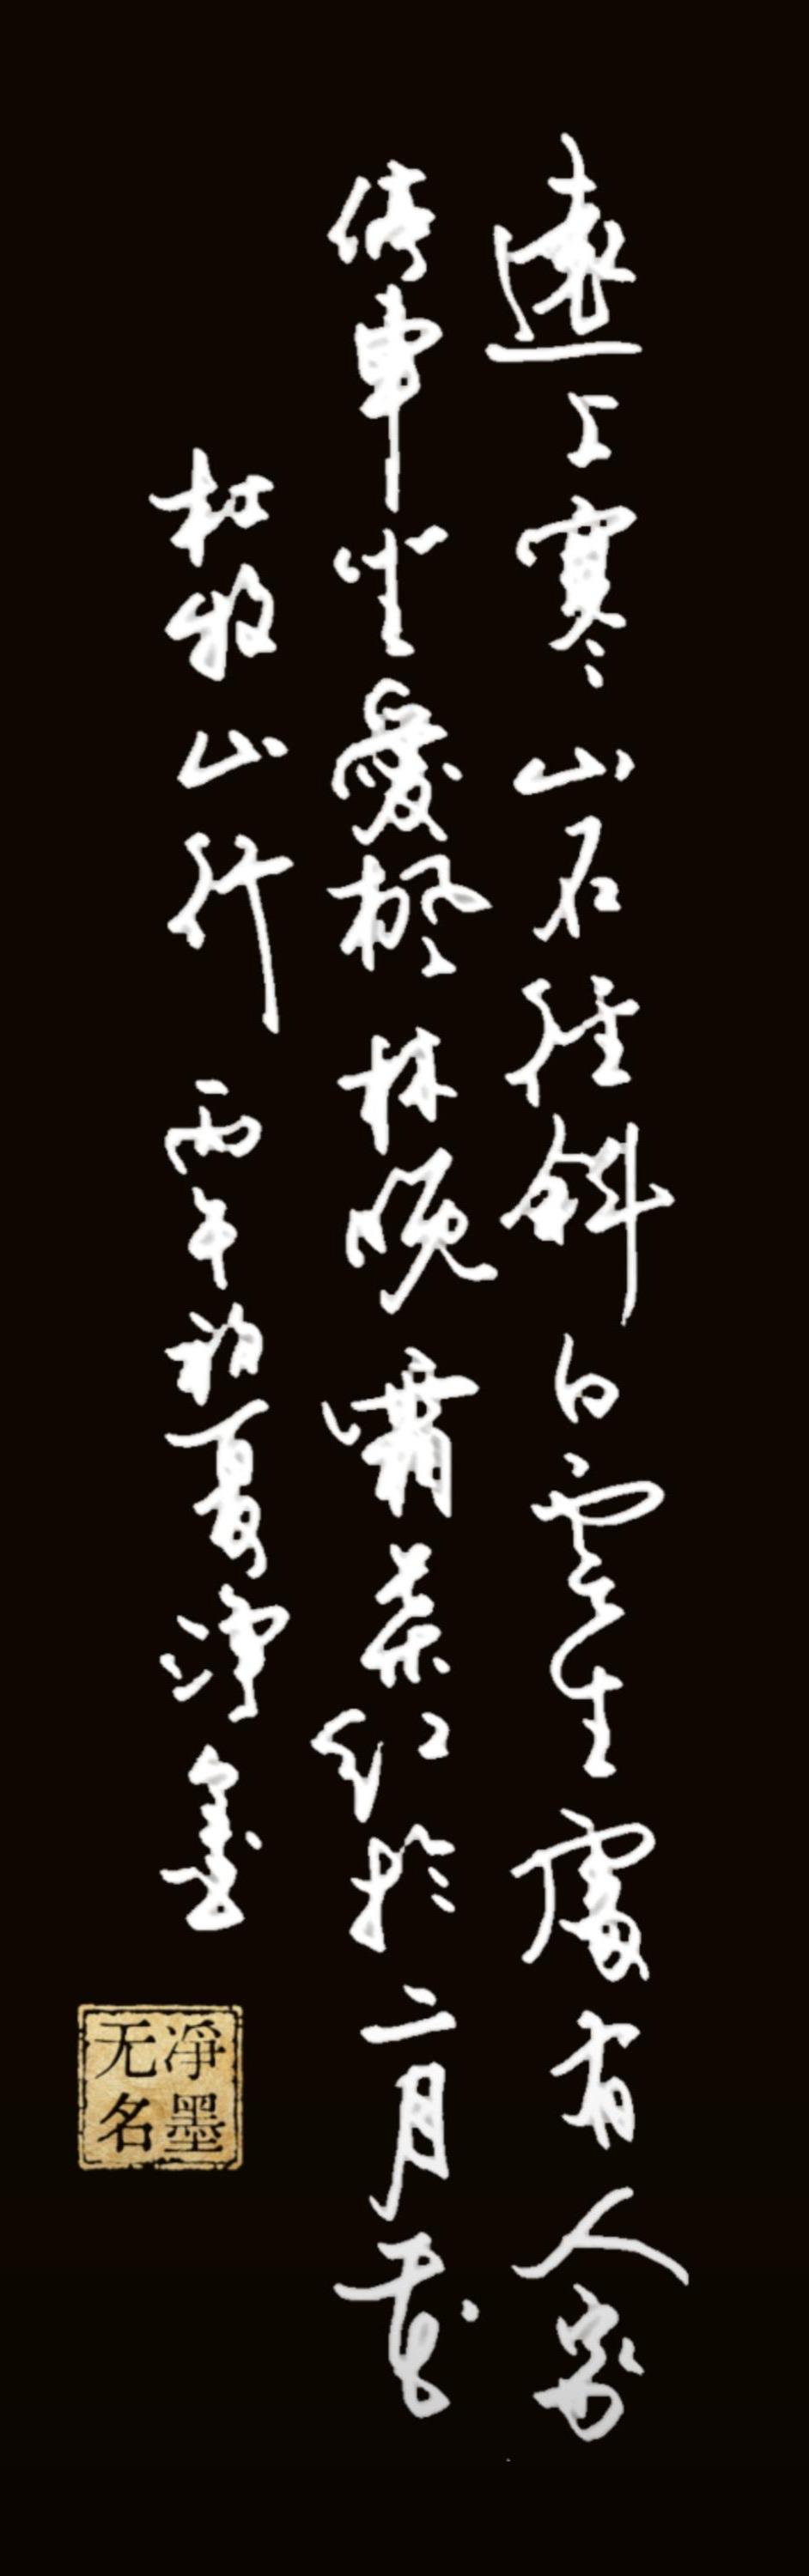 遠上寒山石径斜白雲生處有人家
停車坐愛楓林晚霜葉红於二月花
杜牧山行 丙午初夏淨墨
凈墨
无名